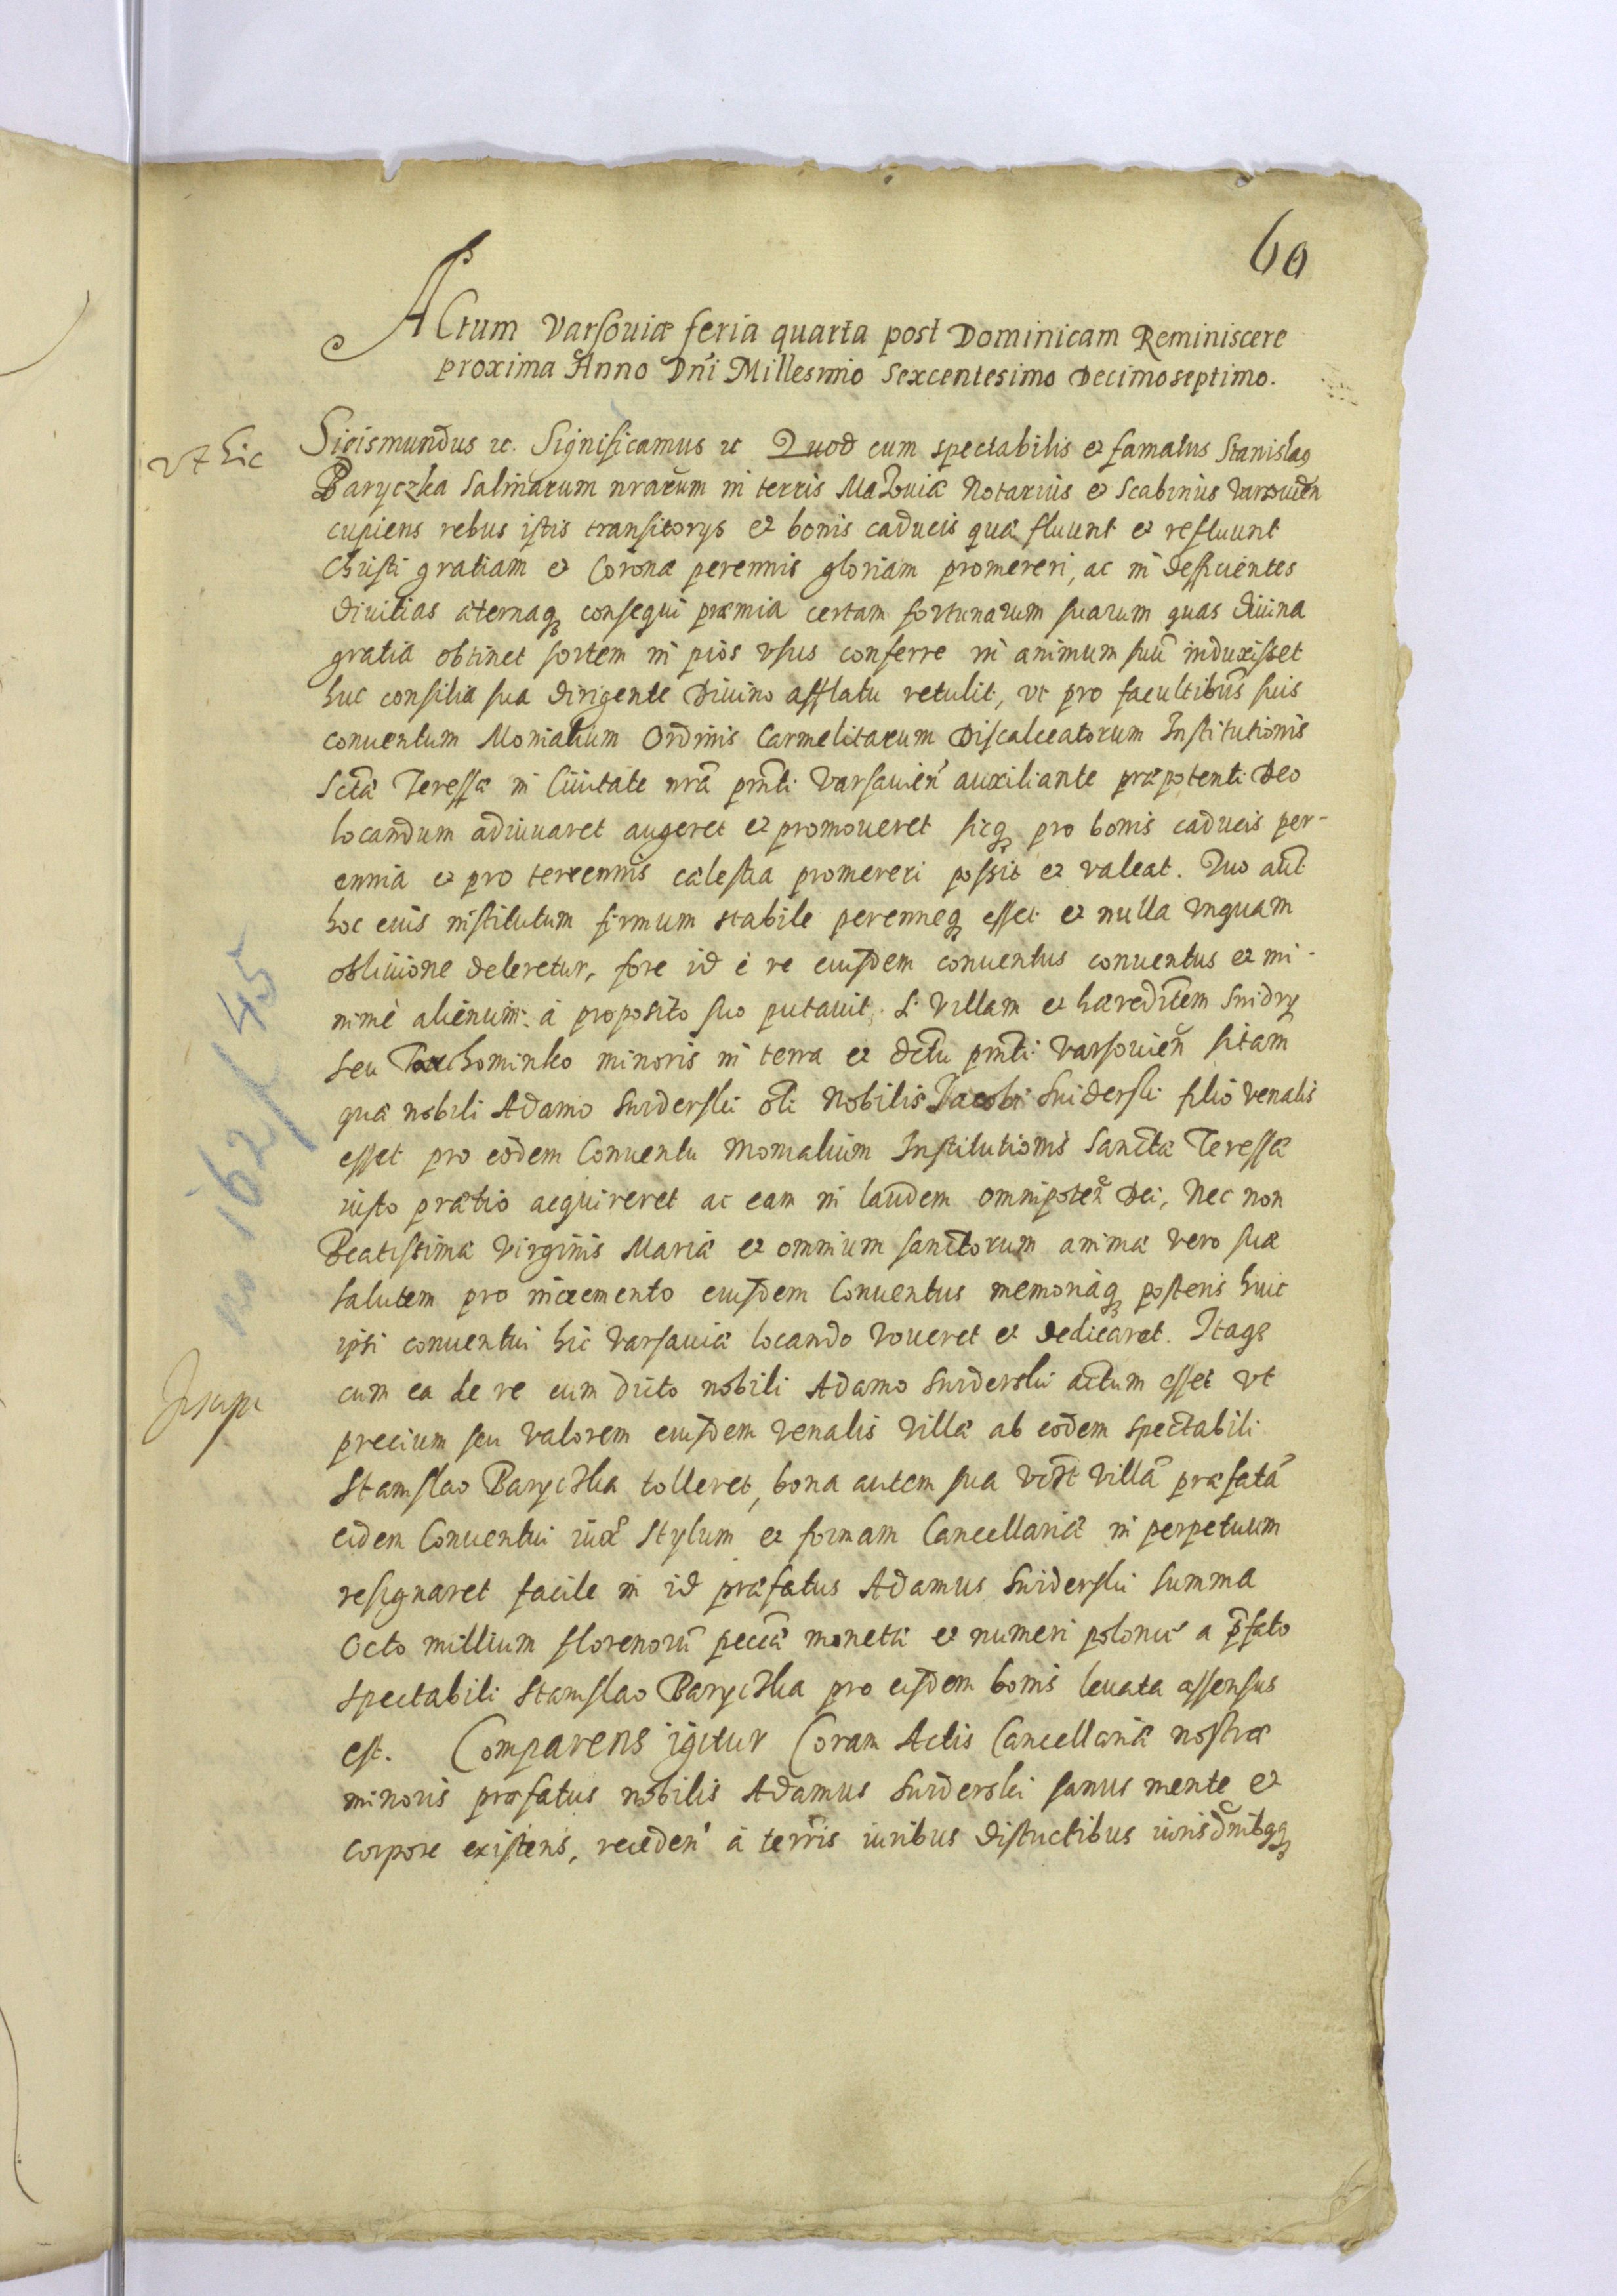 60
Actum Varsouiæ feria quarta post Dominicam Reminiscere
proxima Anno Dni Millesimo Sexcentesimo Decimoseptimo.
vt hic
Sigismundus etc. Significamus etc Quod cum spectabilis et famatus Stanislaus
Baryczka Salinarum nrarum in terris Mazouiæ Notarius et Scabinus Varsouien
cupiens rebus istis transitorys et bonis caducis quæ fluunt et refluunt
Christi gratiam et Coronæ perennis gloriam promereri, ac in defficientes
diuitias æternaq consequi præmia certam fortunarum suarum quas diuina
gratia obtinet sortem in pios vsus conferre in animum suũ induxisset
huc consilia sua dirigente Diuino afflatu retulit, vt pro facultibus suis
conuentum Monialium Ordinis Carmelitarum Discalceatorum Institutionis
Sctæ Teressæ in Ciuitate nrã pnti Varsauien auxiliante præpotenti Deo
locandum adiuuaret augeret et promoueret sicq pro bonis caducis per-
ennia et pro terrennis cælestia promereri possit et valeat. Quo aut
hoc eius institutum firmum stabile perenneq esset et nulla vnquam
obliuione deleretur, fore id è re eiusdem conuentus conuentus et mi-
nimè alienum à proposito suo putauit, Si Villam et hæreditem Suidry
seu minoris in terra et dctu pnti Varsouien sitam
quæ nobili Adamo Suiderski oli Nobilis Jacobi Suiderski filio venalis
esset pro eodem Conuentu Monialium Institutionis Sanctæ Teressæ
iusto prætio acquireret ac eam in laudem omnipoten Dei, Nec non
Beatissimæ Virginis Mariæ et omnium sanctorum animæ vero suæ
salutem pro incremento eiusdem Conuentus memoriaq posteris huic
ipsi conuentui hic Varsauiæ locando voueret et dedicaret. Itaqe
cum ea de re cum dicto nobili Adamo Suiderski actum esset vt
precium seu valorem eiusdem venalis villæ ab eodem spectabili
Stanislao Baryczka tolleret, bona autem sua vidt villã præfatã
eidem Conuentui iuxta Stylum et formam Cancellariæ in perpetuum
resignaret facile in id præfatus Adamus Suiderski summa
Octo millium florenorũ peccæ monetæ et numeri polonici a pfato
spectabili Stanislao Baryczka pro eisdem bonis leuata assensus
est. Comparens igitur Coram Actis Cancellariæ nostræ
minoris præfatus nobilis Adamus Suiderski sanus mente et
corpore existens, receden à terris iuribus districtibus iurisdnibqq
no. 162/45